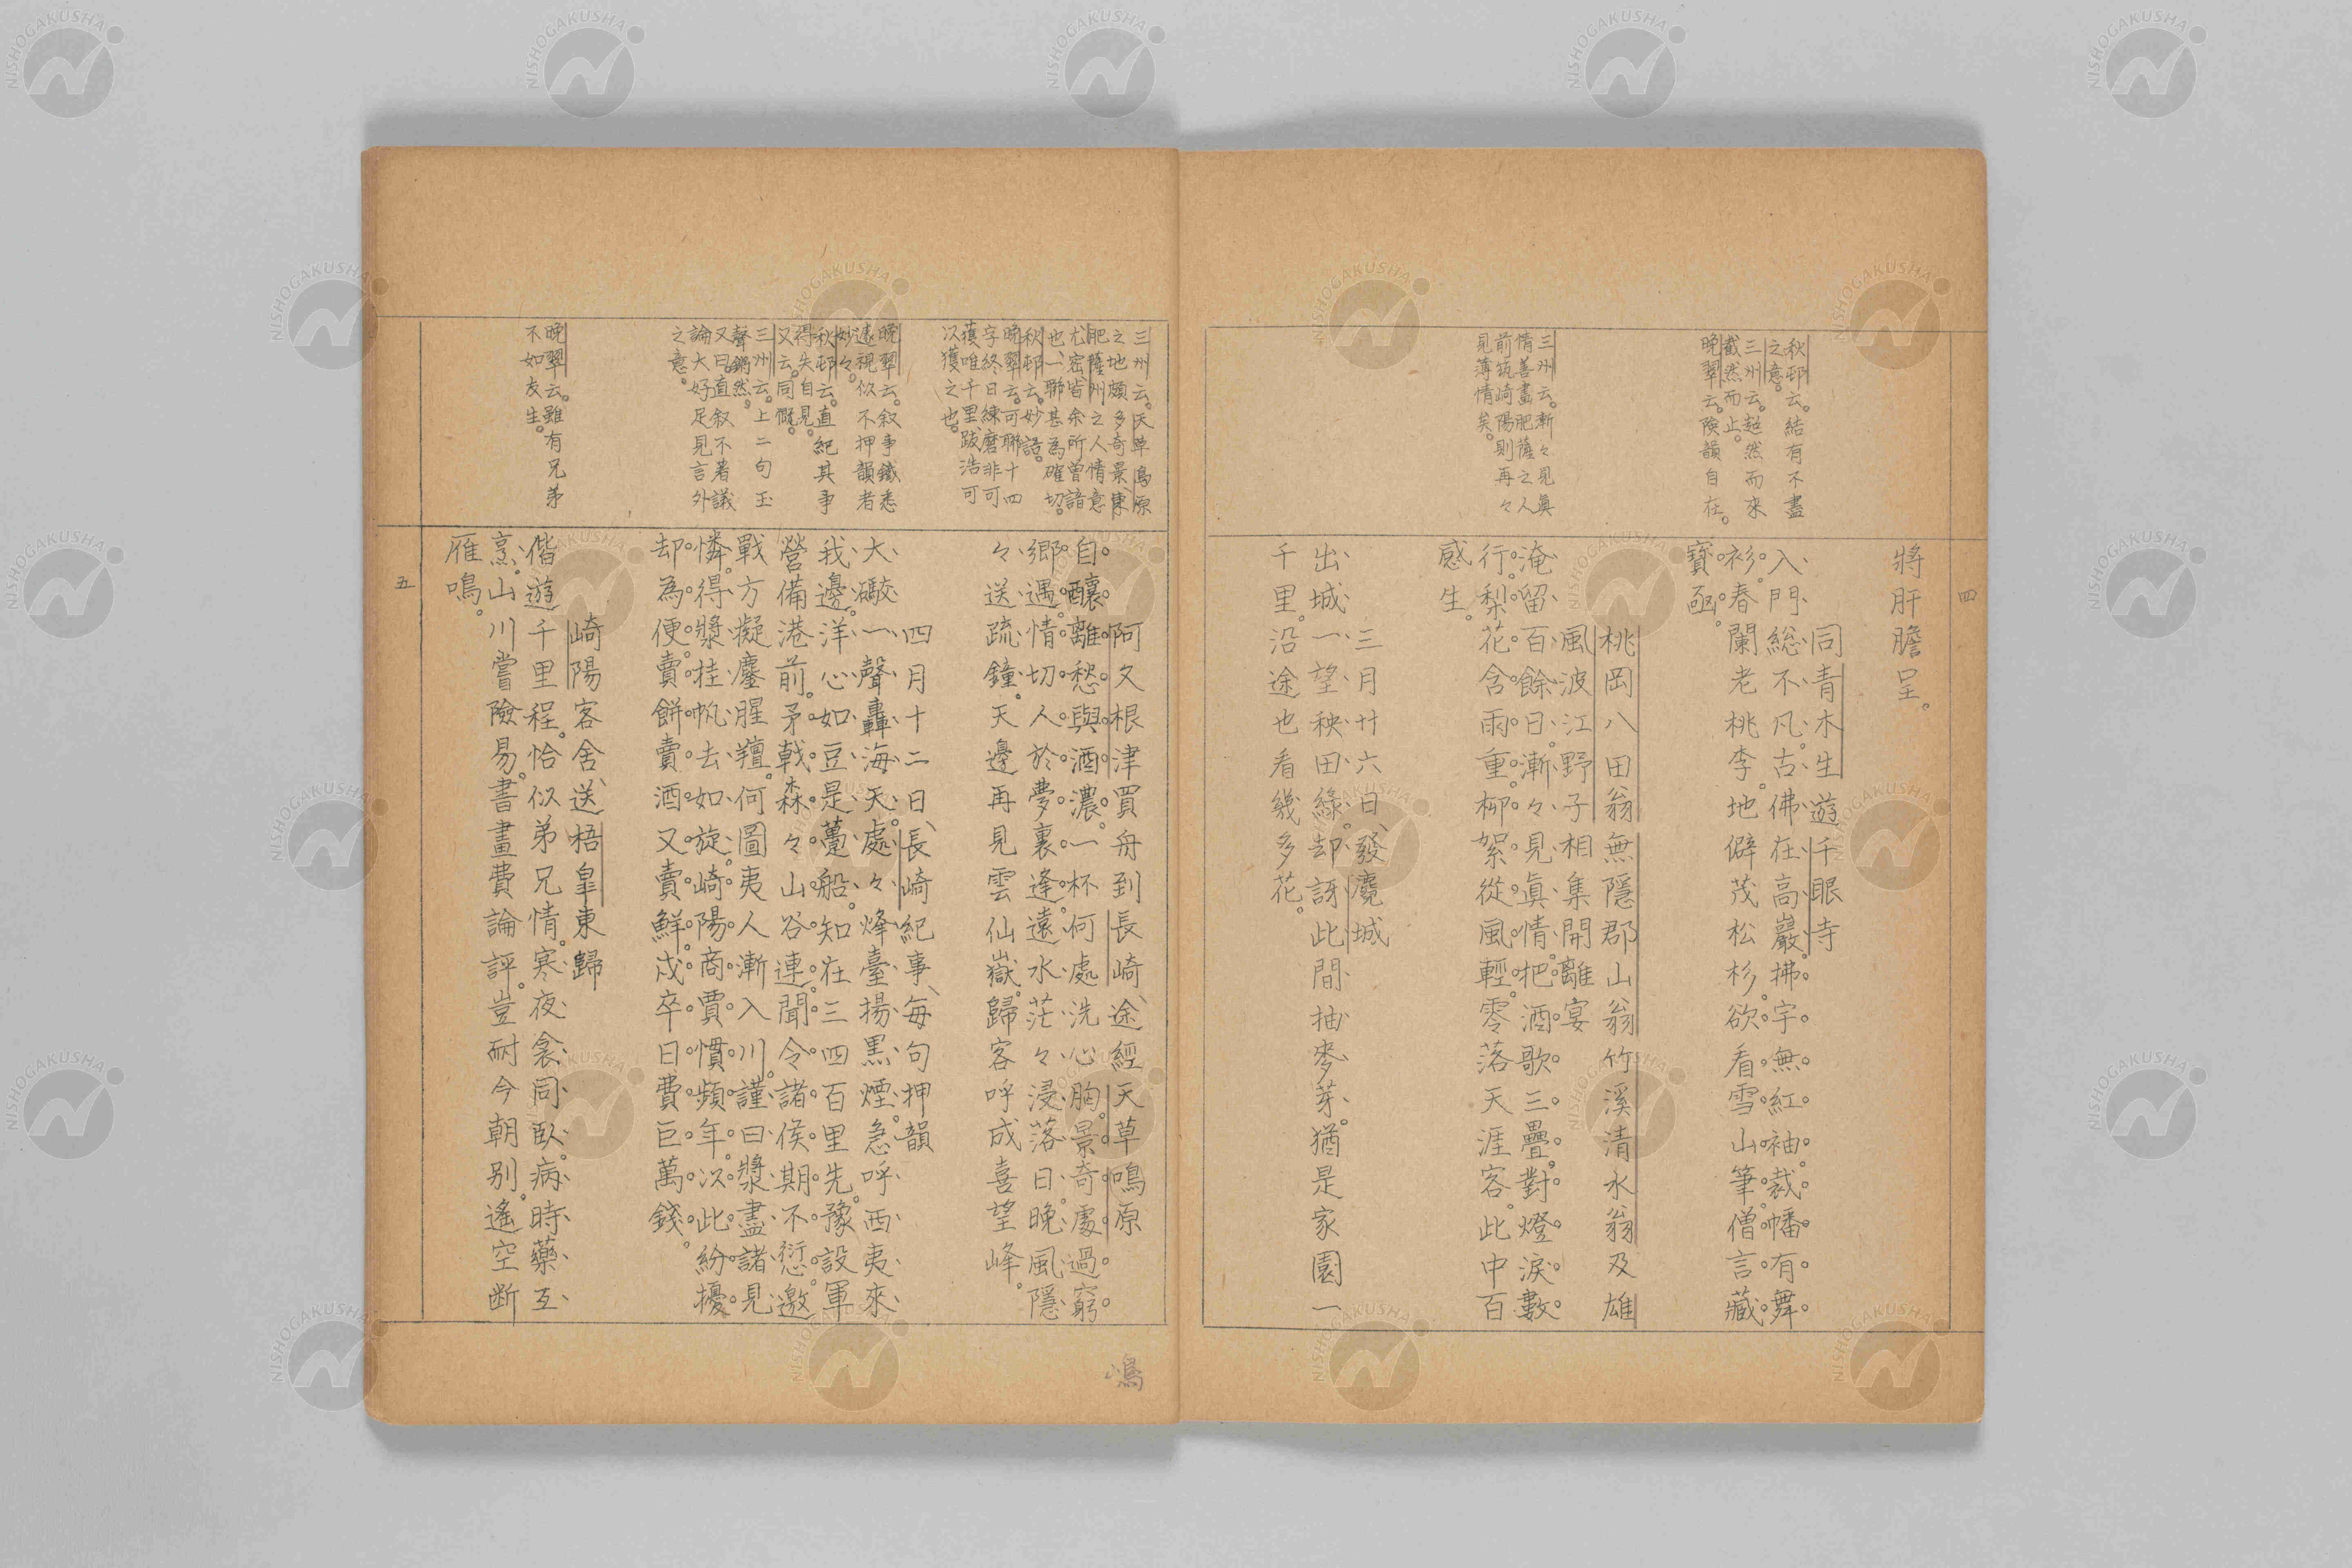 四
秋邨云。結有不盡
之意。
三州云。超然而來
截然而止。
晩翠云。険韻自在。
三州云。漸々見眞
情善畫肥薩之人
前筑崎陽則再々
見薄情矣。
將肝膽呈。
同青木生遊千眼寺
入門総不凡。古佛在高巖。拂宇無紅袖。裁幡有舞
衫。春闌老桃李。地僻茂松杉。欲看雪山筆。僧言藏
寶函。
桃岡八田翁無隱郡山翁竹溪清水翁及雄
風波江野子相集開離宴
淹留百餘日。漸々見眞情。把酒歌三疊。對燈淚數
行。梨花含雨重。柳絮從風輕。零落天涯客。此中百
感生。
三月廿六日、發麑城
出城一望秧田綠。却訝此間抽麥芽。猶是家園一
千里。沿途也看幾多花。
三州云。天草嶋原
之地頗多奇景、東
肥薩州之人情意
尤密皆余所曾諳
也、一聯甚為確切。
秋邨云。妙語。
晩翠云。可聯十四
字終日練磨非可
獲唯千里跋浩可
以獲之也。
晩翠云。叙事鐵悉
遠視似不押韻者
妙々。
秋邨云。直紀其事
得失自見。
又云。同慨。
三州云。上二句玉
聲鏘然、
又曰。直叙不著議
論大好足見言外
之意。
晩翠云。雖有兄弟
不如友生。
阿久根津買舟到長崎、途經天草鳴原
自釀離愁與酒濃。一杯何處洗心胸。景奇處過窮
鄉遇。情切人於夢裏逢。遠水茫々浸落日晩風隱
々送疏鐘。天邊再見雲仙嶽。歸客呼成喜望峰。
四月十二日、長崎紀事、每句押韻
大礮一聲轟海天。處々烽臺揚黒煙。急呼西夷來
我邊。洋心如豆是蠆船。知在三四百里先。豫設軍
營備港前。矛戟森々山谷連。聞令諸侯期不愆。邀
戰方擬鏖腥羶。何圖夷人漸入川。謹曰漿盡諸見
憐。得漿挂帆去如旋。崎陽商賈慣頻年。以此紛擾
却為便。賣餅賣酒又賣鮮。戍卒日費巨萬錢。
崎陽客舍送梧皐東歸
偕遊千里程。恰似弟兄情。寒夜衾同臥。病時藥互
烹。山川嘗險易。書畫費論評。豈耐今朝別。遙空断
雁鳴。
五
嶋